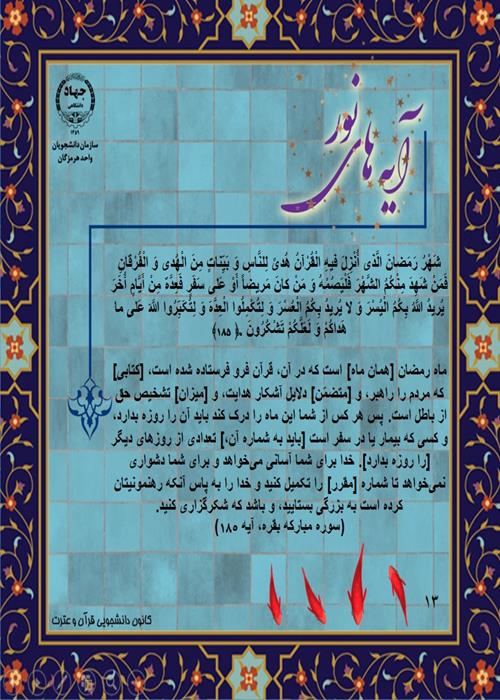 جهاد
دانشگاهی
۱۳۵۹
سازمان دانشجویان
واحد هرمزگان
آیه های نور
شَهْرُ رَمَضانَ الَّذی أُنْزِلَ فیهِ الْقُرْآنُ هُدىً لِلنَّاسِ وَ بَیِّناتٍ مِنَ الْهُدى وَ الْفُرْقانِ
فَمَنْ شَهِدَ مِنْكُمُ الشَّهْرَ فَلْیَصُمْهُ وَ مَنْ كانَ مَریضاً أَوْ عَلى سَفَرٍ فَعِدَّةٌ مِنْ أَیَّامٍ أُخَرَ
یُریدُ اللهُ بِكُمُ الْیُسْرَ وَ لا یُریدُ بِكُمُ الْعُسْرَ وَ لِتُكْمِلُوا الْعِدَّةَ وَ لِتُكَبِّرُوا اللهَ عَلى ما
هَداكُمْ وَ لَعَلَّكُمْ تَشْكُرُونَ .﴿ ۱۸۵﴾
ماه رمضان [همان ماه] است که در آن، قرآن فرو فرستاده شده است، [کتابی]
که مردم را راهبر، و [متضمّن] دلایل آشکار هدایت، و [میزان] تشخیص حق
از باطل است. پس هر کس از شما این ماه را درک کند باید آن را روزه بدارد،
و کسی که بیمار یا در سفر است [باید به شماره آن،] تعدادی از روزهای دیگر
[را روزه بدارد]. خدا برای شما آسانی می‌خواهد و برای شما دشواری
نمی‌خواهد تا شماره [مقرر] را تکمیل کنید و خدا را به پاس آنکه رهنمونیتان
کرده است به بزرگی بستایید، و باشد که شکرگزاری کنید.
(سوره مبارکه بقره، آیه ۱۸۵)
۱۳
کانون دانشجویی قرآن و عترت